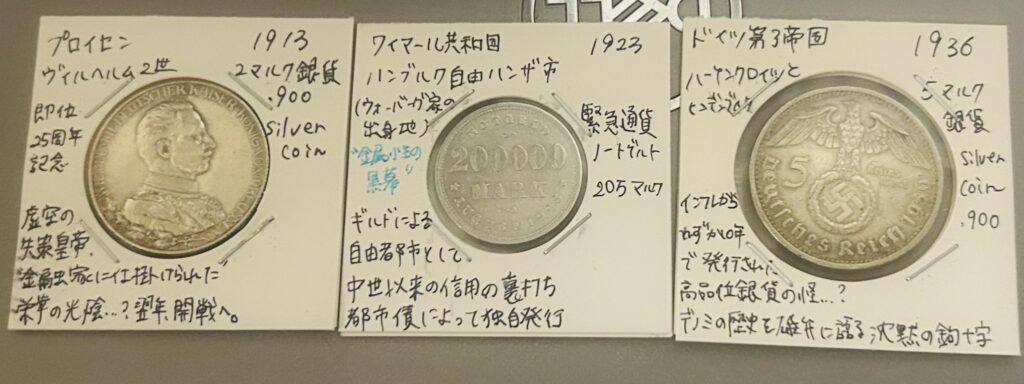 プロイセン 1913
ヴィルヘルム2世 2マルク銀貨
.900
silver
coin
即位
25周年
記念
虚空の
失策皇帝、
栄華の光陰…?翌年開戦へ。
DEUTSCHER KAISER KÖNIG
ワイマール共和国 1923
ハンブルク自由ハンザ市
(ウォーバーグ家の
出身地)
緊急通貨
ノートゲルト
205マルク
黒幕"
ギルドによる
自由都市として
中世以来の信用の裏打ち
都市債によって独自発行
200000
MARK
ドイツ第3帝国 1936
ハーケンクロイツと
ヒンデンブルク
5マルク
銀貨
silver
coin
.900
インフレから
わずか10年
で発行された
高品位銀貨の怪…?
デノミの歴史を雄弁に語る沈黙の鉤十字
5
Deutsches Reich 1936